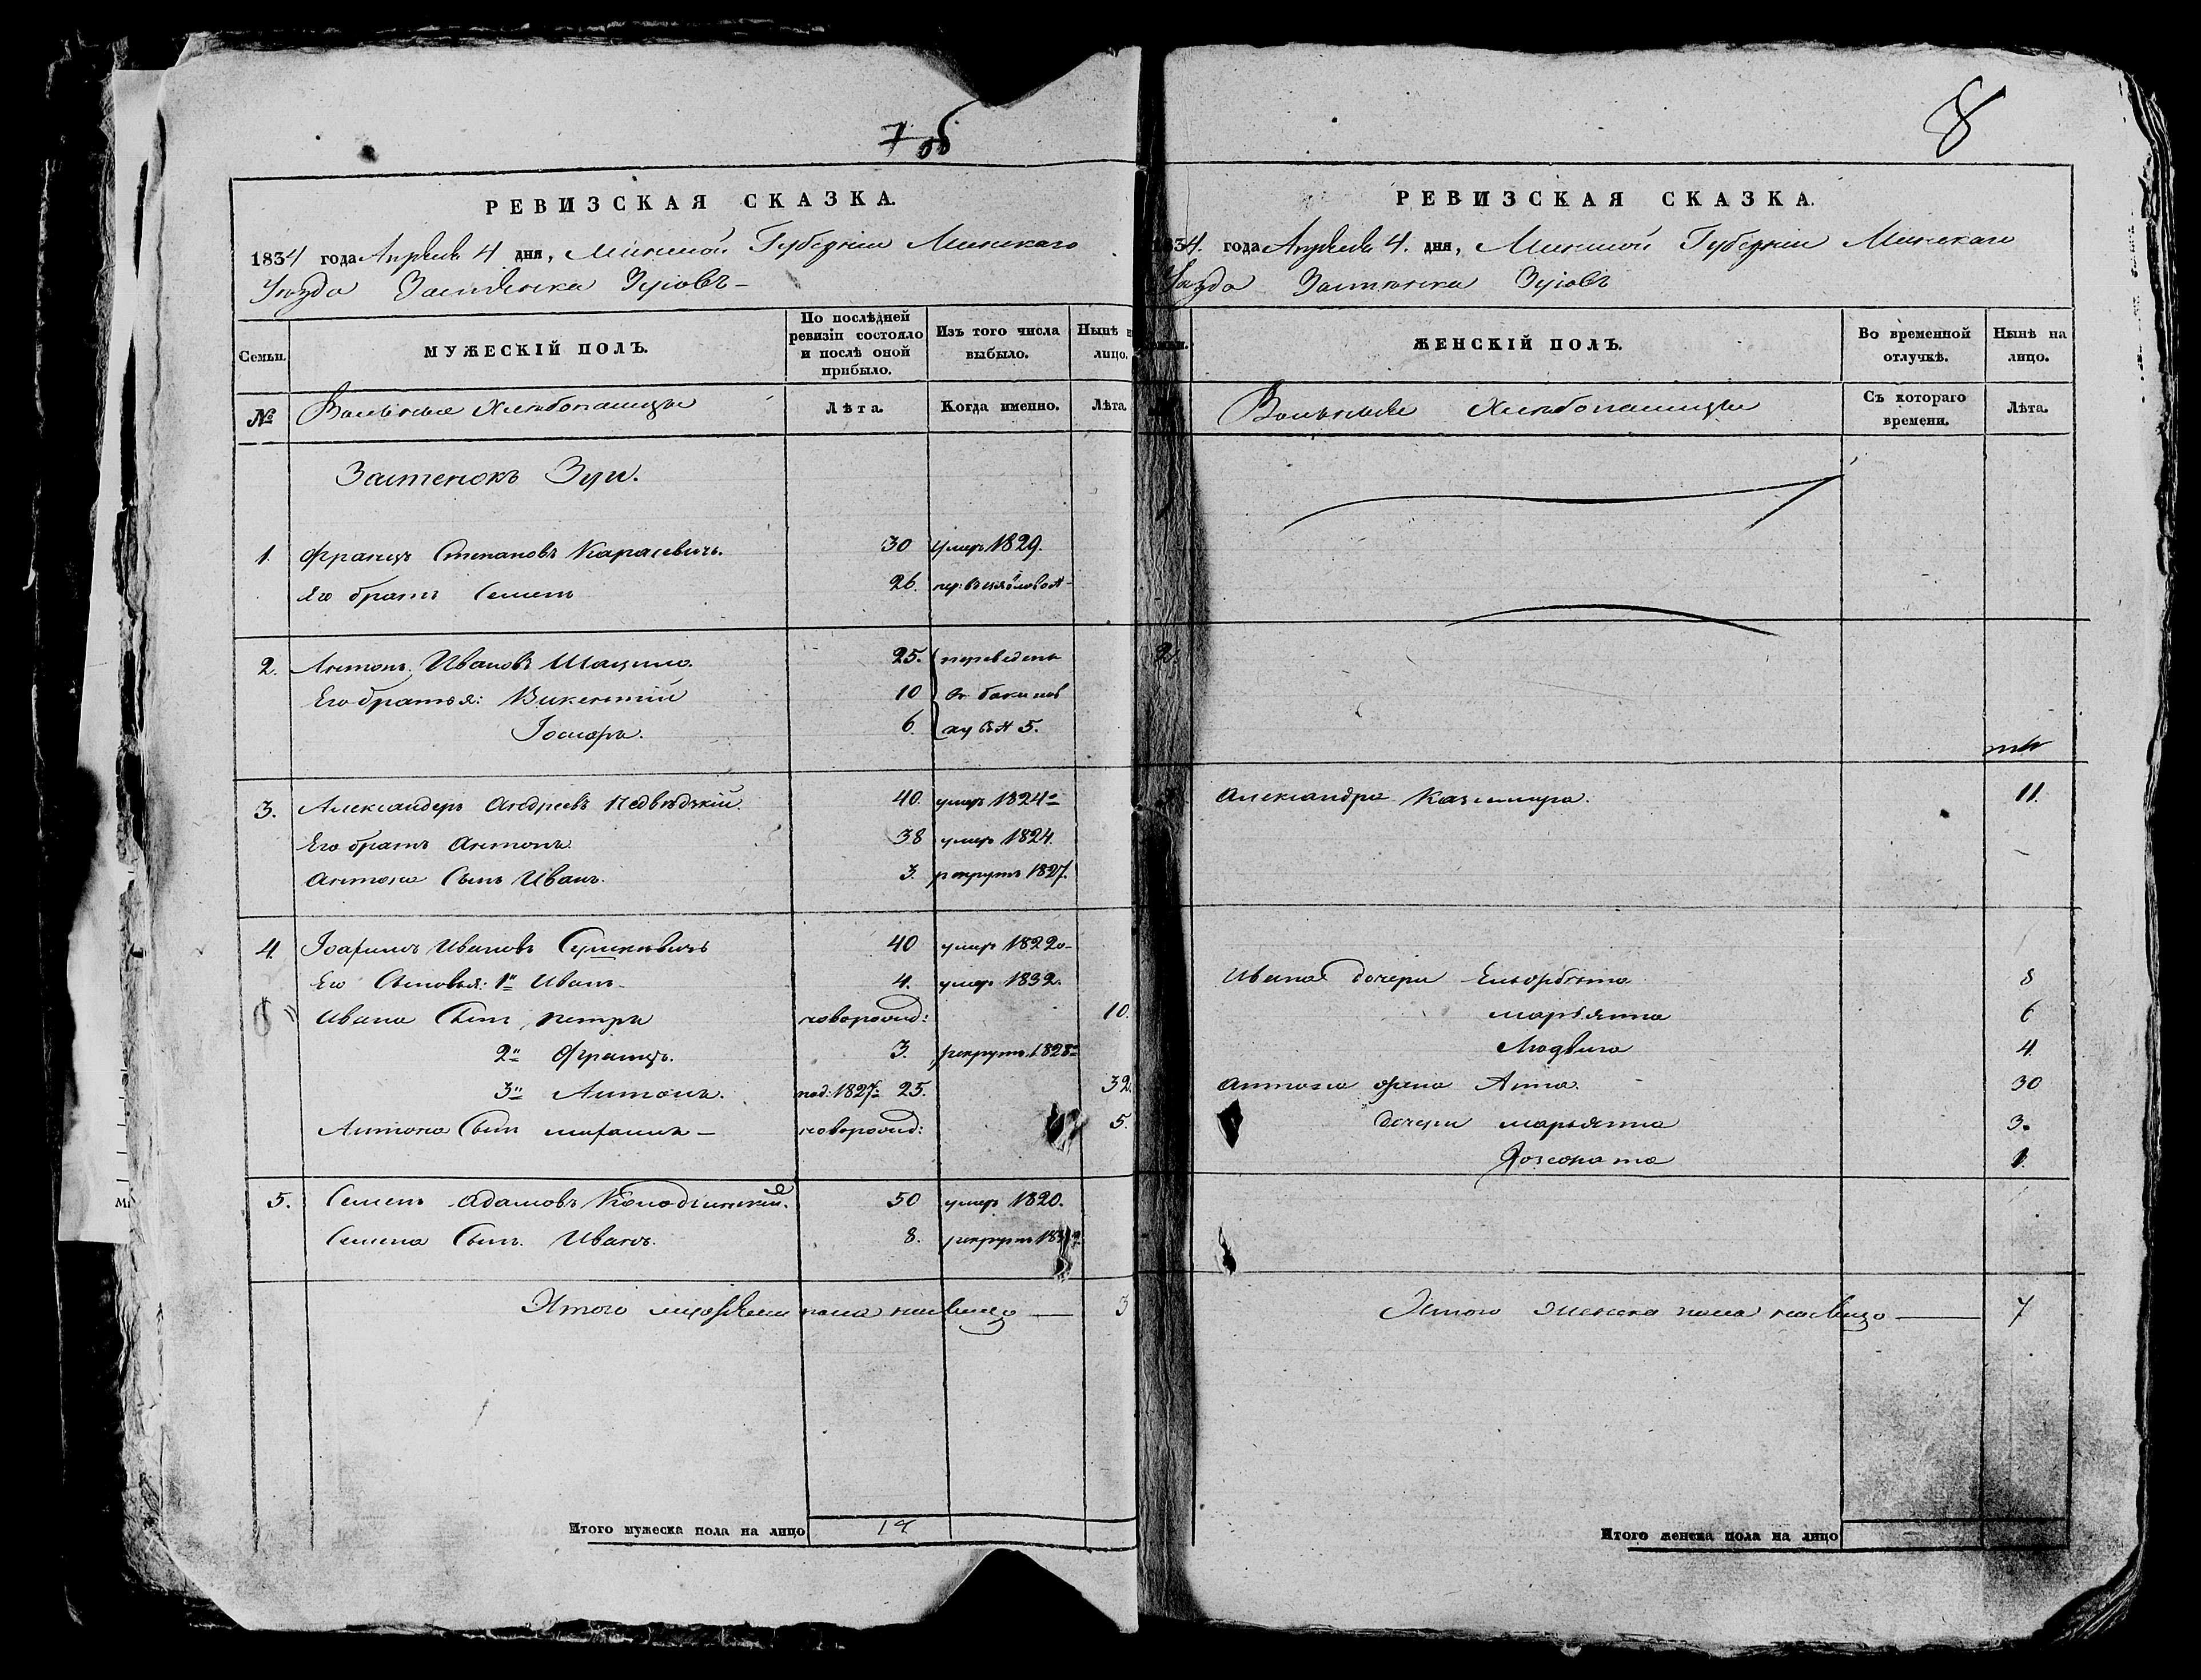 7 об
РЕВИЗСКАЯ СКАЗКА.
1834 года Апреля 4 дня, Минской Губерніи Минскаго
Уезда Застенка Зуіовъ
Семьи.
МУЖЕСКІЙ ПОЛЪ.
По послѣдней ревизіи состояло и послѣ оной прибыло.
Изъ того числа выбыло.
Нынѣ н лицо.
№
Вольные Хлебопашцы
Лѣта.
Когда именно.
Лѣта
Застенокъ Зуи.
1. Францъ Степановъ Карасевичъ. 30 умеръ 1829.
Его братъ Семенъ 26.
2. Антонъ Ивановъ 25. переведенъ
Его братья: Викентій 10
Іосифъ. 6. 5.
3. Александеръ Андреевъ Недвѣдзкій. 40. умеръ 1824
Его братъ Антонъ 38 умеръ 1824.
Антона Сынъ Иванъ. 3. рекрутъ 1827.
4. Іоахимъ Ивановъ 40 умеръ 1822
Его Сыновья: 1й Иванъ 4. умеръ 1832.
Ивана Сынъ Петръ новорожд: 10.
2й Францъ. 3. рекрутъ 1828
3й Антонъ. 1827 25. 32.
Антона Сынъ новорожд: 5.
5. Семенъ Адамовъ Колодзинскій. 50 умеръ 1820.
Семена Сынъ Иванъ. 8. рекрутъ
Итого мужеска пола на лицо 3
Итого мужеска пола на лицо
8
РЕВИЗСКАЯ СКАЗКА.
1834. года Апреля 4. дня, Минской Губерніи Минскаго
Уезда Застенка Зуіовъ
ЖЕНСКІЙ ПОЛЪ.
Во временной отлучкѣ.
Нынѣ на лицо.
Вольные Хлебопашцы
Съ котораго времени.
Лѣта.
2.
Александра Казимира. 11.
Ивана дочери Ельжбѣта 8
Марьянна 6
Людвига 4.
Антона жена Анна. 30
дочери Марьянна 3.
1.
Итого женска пола на лицо 7
Итого женска пола на лицо